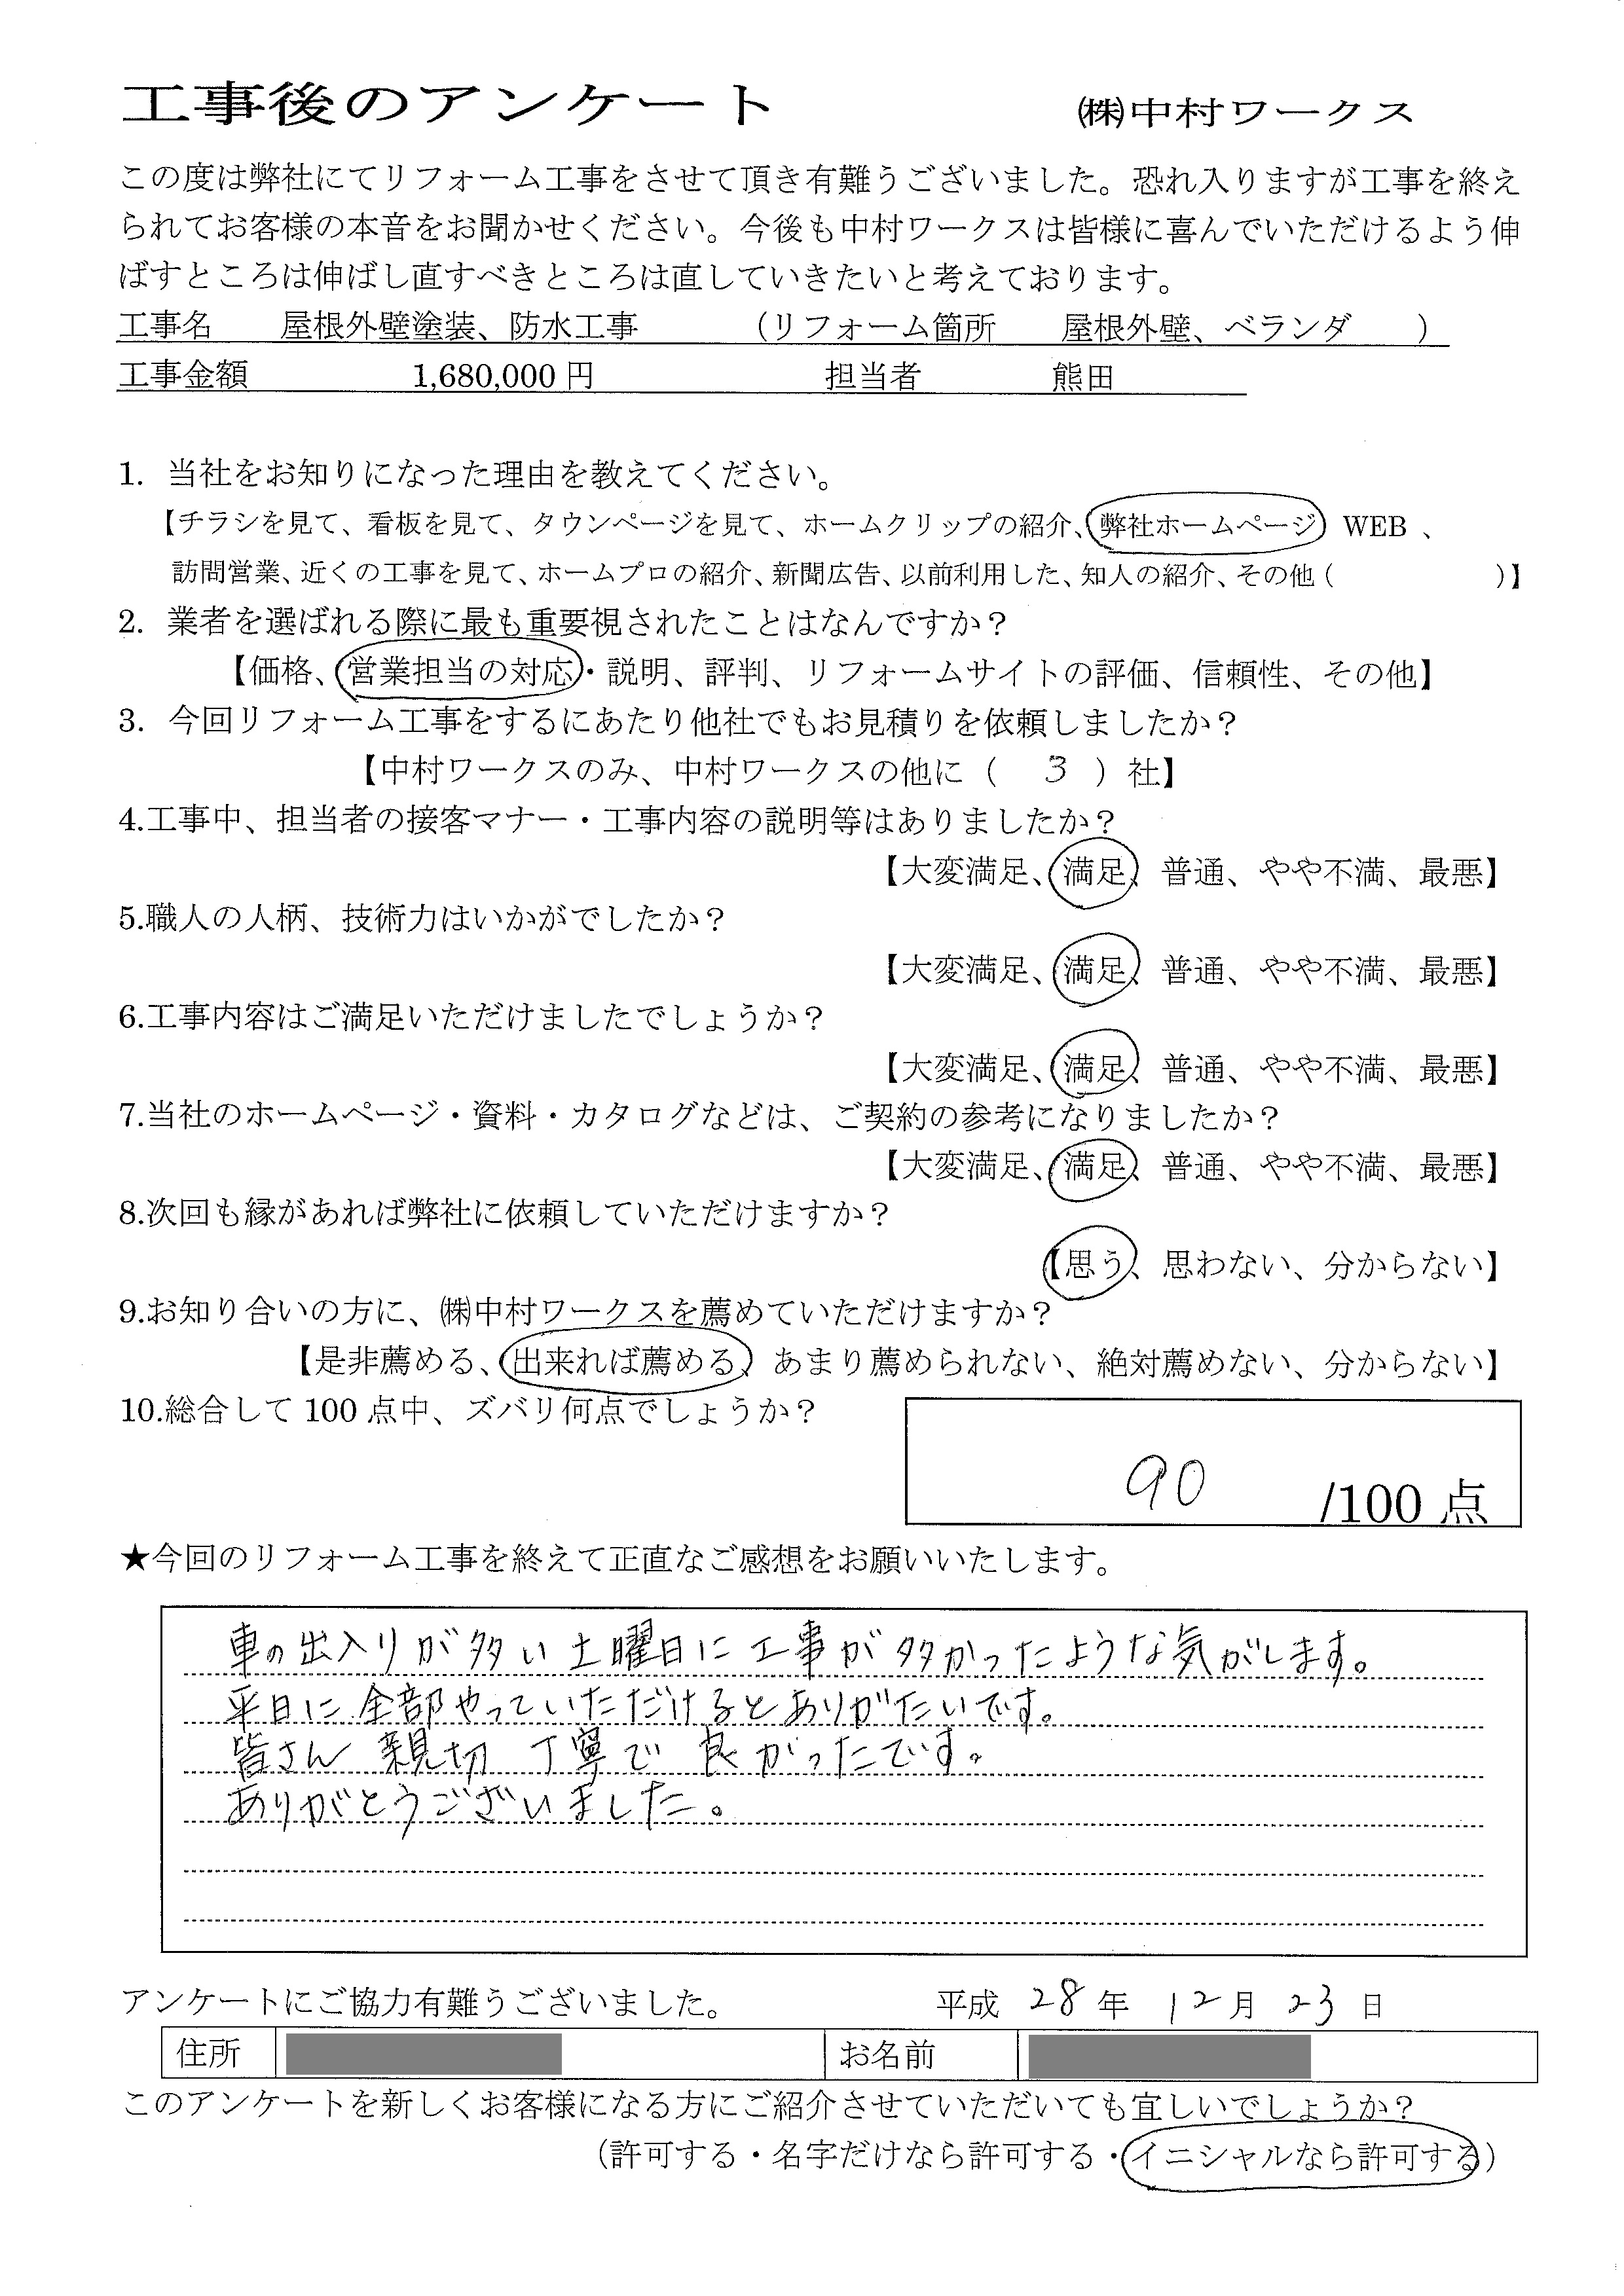 工事後のアンケート ㈱中村ワークス
この度は弊社にてリフォーム工事をさせて頂き有難うございました。恐れ入りますが工事を終え
られてお客様の本音をお聞かせください。今後も中村ワークスは皆様に喜んでいただけるよう伸
ばすところは伸ばし直すべきところは直していきたいと考えております。
工事名 屋根外壁塗装、防水工事 （リフォーム箇所 屋根外壁、ベランダ ）
工事金額 1,680,000 円 担当者 熊田
1. 当社をお知りになった理由を教えてください。
【チラシを見て、看板を見て、タウンページを見て、ホームクリップの紹介、弊社ホームページ WEB 、
訪問営業、近くの工事を見て、ホームプロの紹介、新聞広告、以前利用した、知人の紹介、その他（ ）】
2. 業者を選ばれる際に最も重要視されたことはなんですか？
【価格、営業担当の対応・説明、評判、リフォームサイトの評価、信頼性、その他】
3. 今回リフォーム工事をするにあたり他社でもお見積りを依頼しましたか？
【中村ワークスのみ、中村ワークスの他に（ 3 ）社】
4.工事中、担当者の接客マナー・工事内容の説明等はありましたか？
【大変満足、満足、普通、やや不満、最悪】
5.職人の人柄、技術力はいかがでしたか？
【大変満足、満足、普通、やや不満、最悪】
6.工事内容はご満足いただけましたでしょうか？
【大変満足、満足、普通、やや不満、最悪】
7.当社のホームページ・資料・カタログなどは、ご契約の参考になりましたか？
【大変満足、満足、普通、やや不満、最悪】
8.次回も縁があれば弊社に依頼していただけますか？
【思う、思わない、分からない】
9.お知り合いの方に、㈱中村ワークスを薦めていただけますか？
【是非薦める、出来れば薦める、あまり薦められない、絶対薦めない、分からない】
10.総合して 100 点中、ズバリ何点でしょうか？
90 /100 点
★今回のリフォーム工事を終えて正直なご感想をお願いいたします。
車の出入りが多い土曜日に工事が多かったような気がします。
平日に全部やっていただけるとありがたいです。
皆さん 親切 丁寧で 良かったです。
ありがとうございました。
アンケートにご協力有難うございました。 平成 28 年 12 月 23 日
住所 お名前
このアンケートを新しくお客様になる方にご紹介させていただいても宜しいでしょうか？
（許可する・名字だけなら許可する・イニシャルなら許可する）